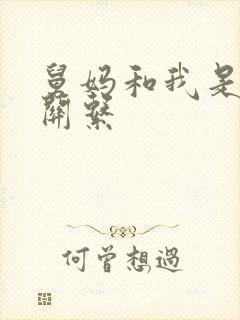 舅妈和我是
關繫
何曾想過